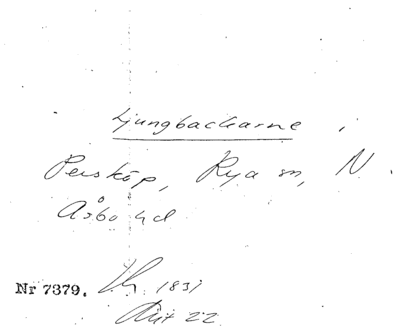 Ljungbackarne,
Perskåp, Rya sn, N.
Åsbo hd
Nr 7379. Lh. 1831
Akt 22